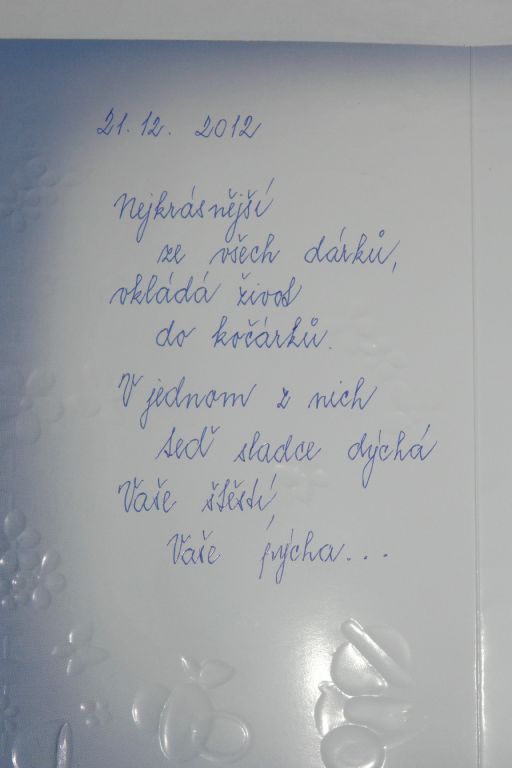 21. 12. 2012
Nejkrásnější
ze všech dárků,
vkládá život
do kočárků.
V jednom z nich
teď sladce dýchá
Vaše štěstí
Vaše pýcha...